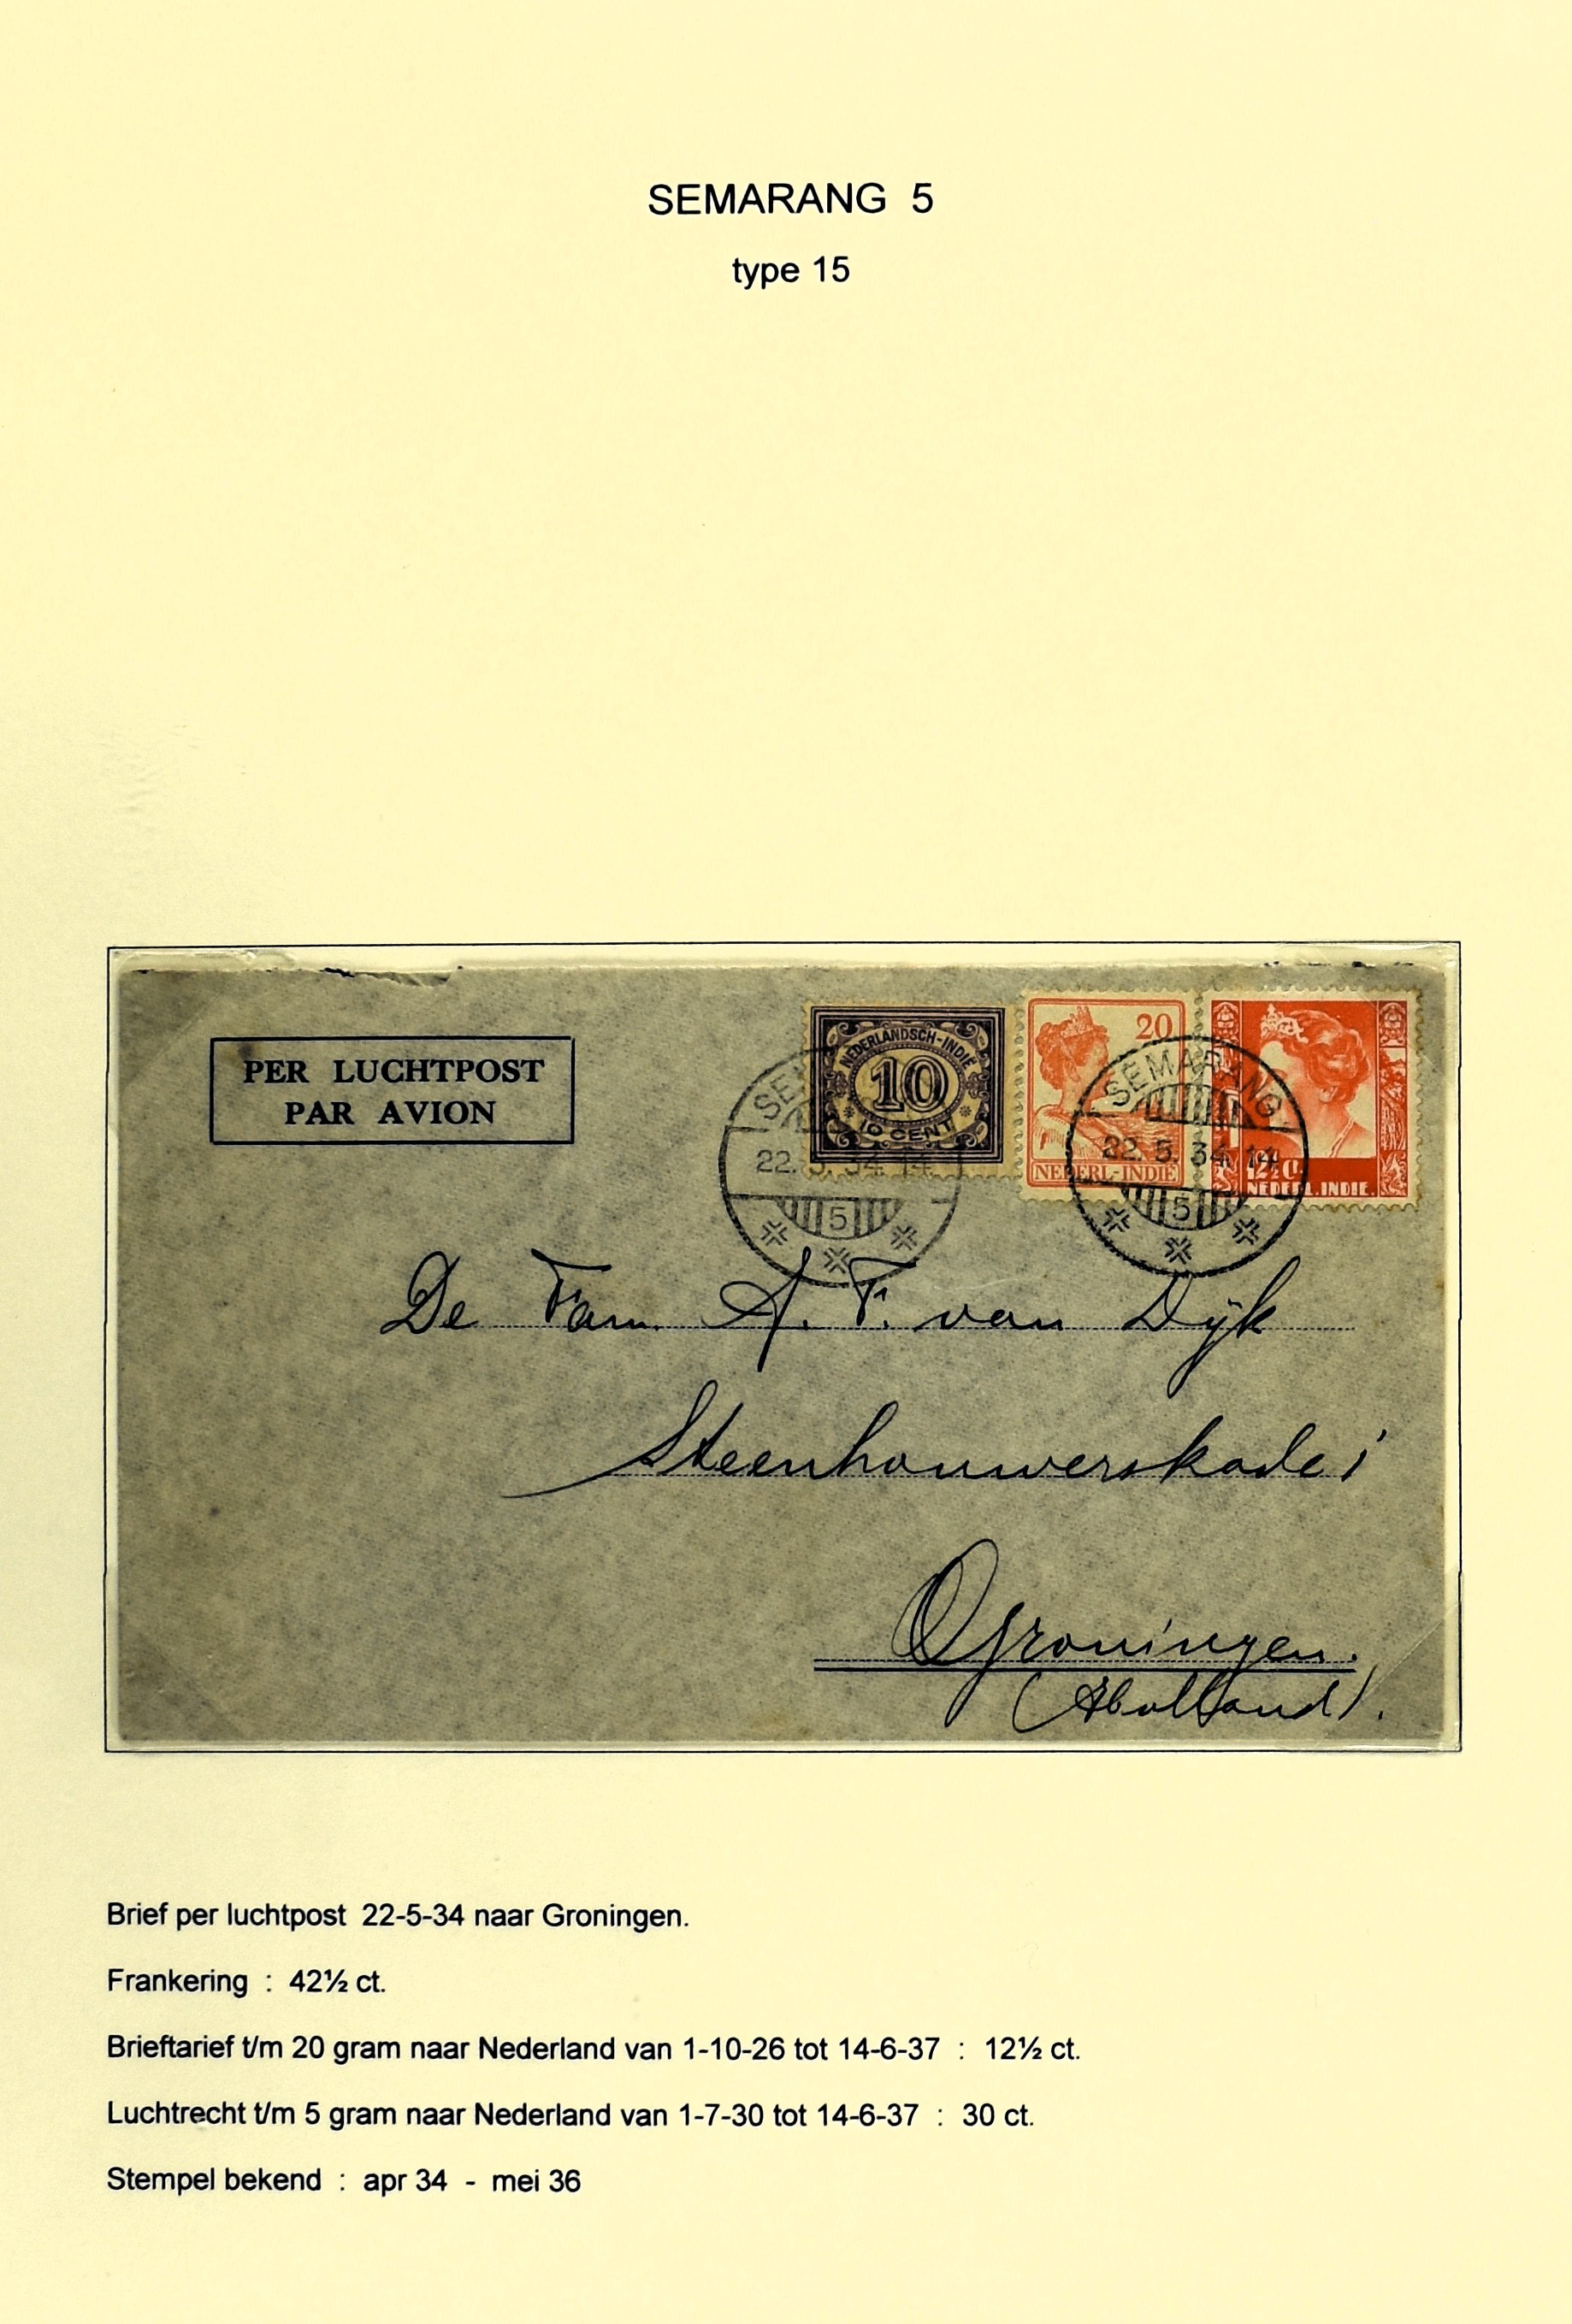 SEMARANG 5
type 15
PER LUCHTPOST
PAR AVION
NEDERLANDSCH-INDIË
10
10 CENT
20
NEDERL-INDIË
12½ C.
NEDERL.INDIE.
SEMARANG
22. 5. 34. 14
5
SEMARANG
22. 5. 34. 14
5
De Fam. A. F. van Dÿk
Steenhouwerskade i
Groningen.
(Holland).
Brief per luchtpost 22-5-34 naar Groningen.
Frankering : 42½ ct.
Brieftarief t/m 20 gram naar Nederland van 1-10-26 tot 14-6-37 : 12½ ct.
Luchtrecht t/m 5 gram naar Nederland van 1-7-30 tot 14-6-37 : 30 ct.
Stempel bekend : apr 34 - mei 36